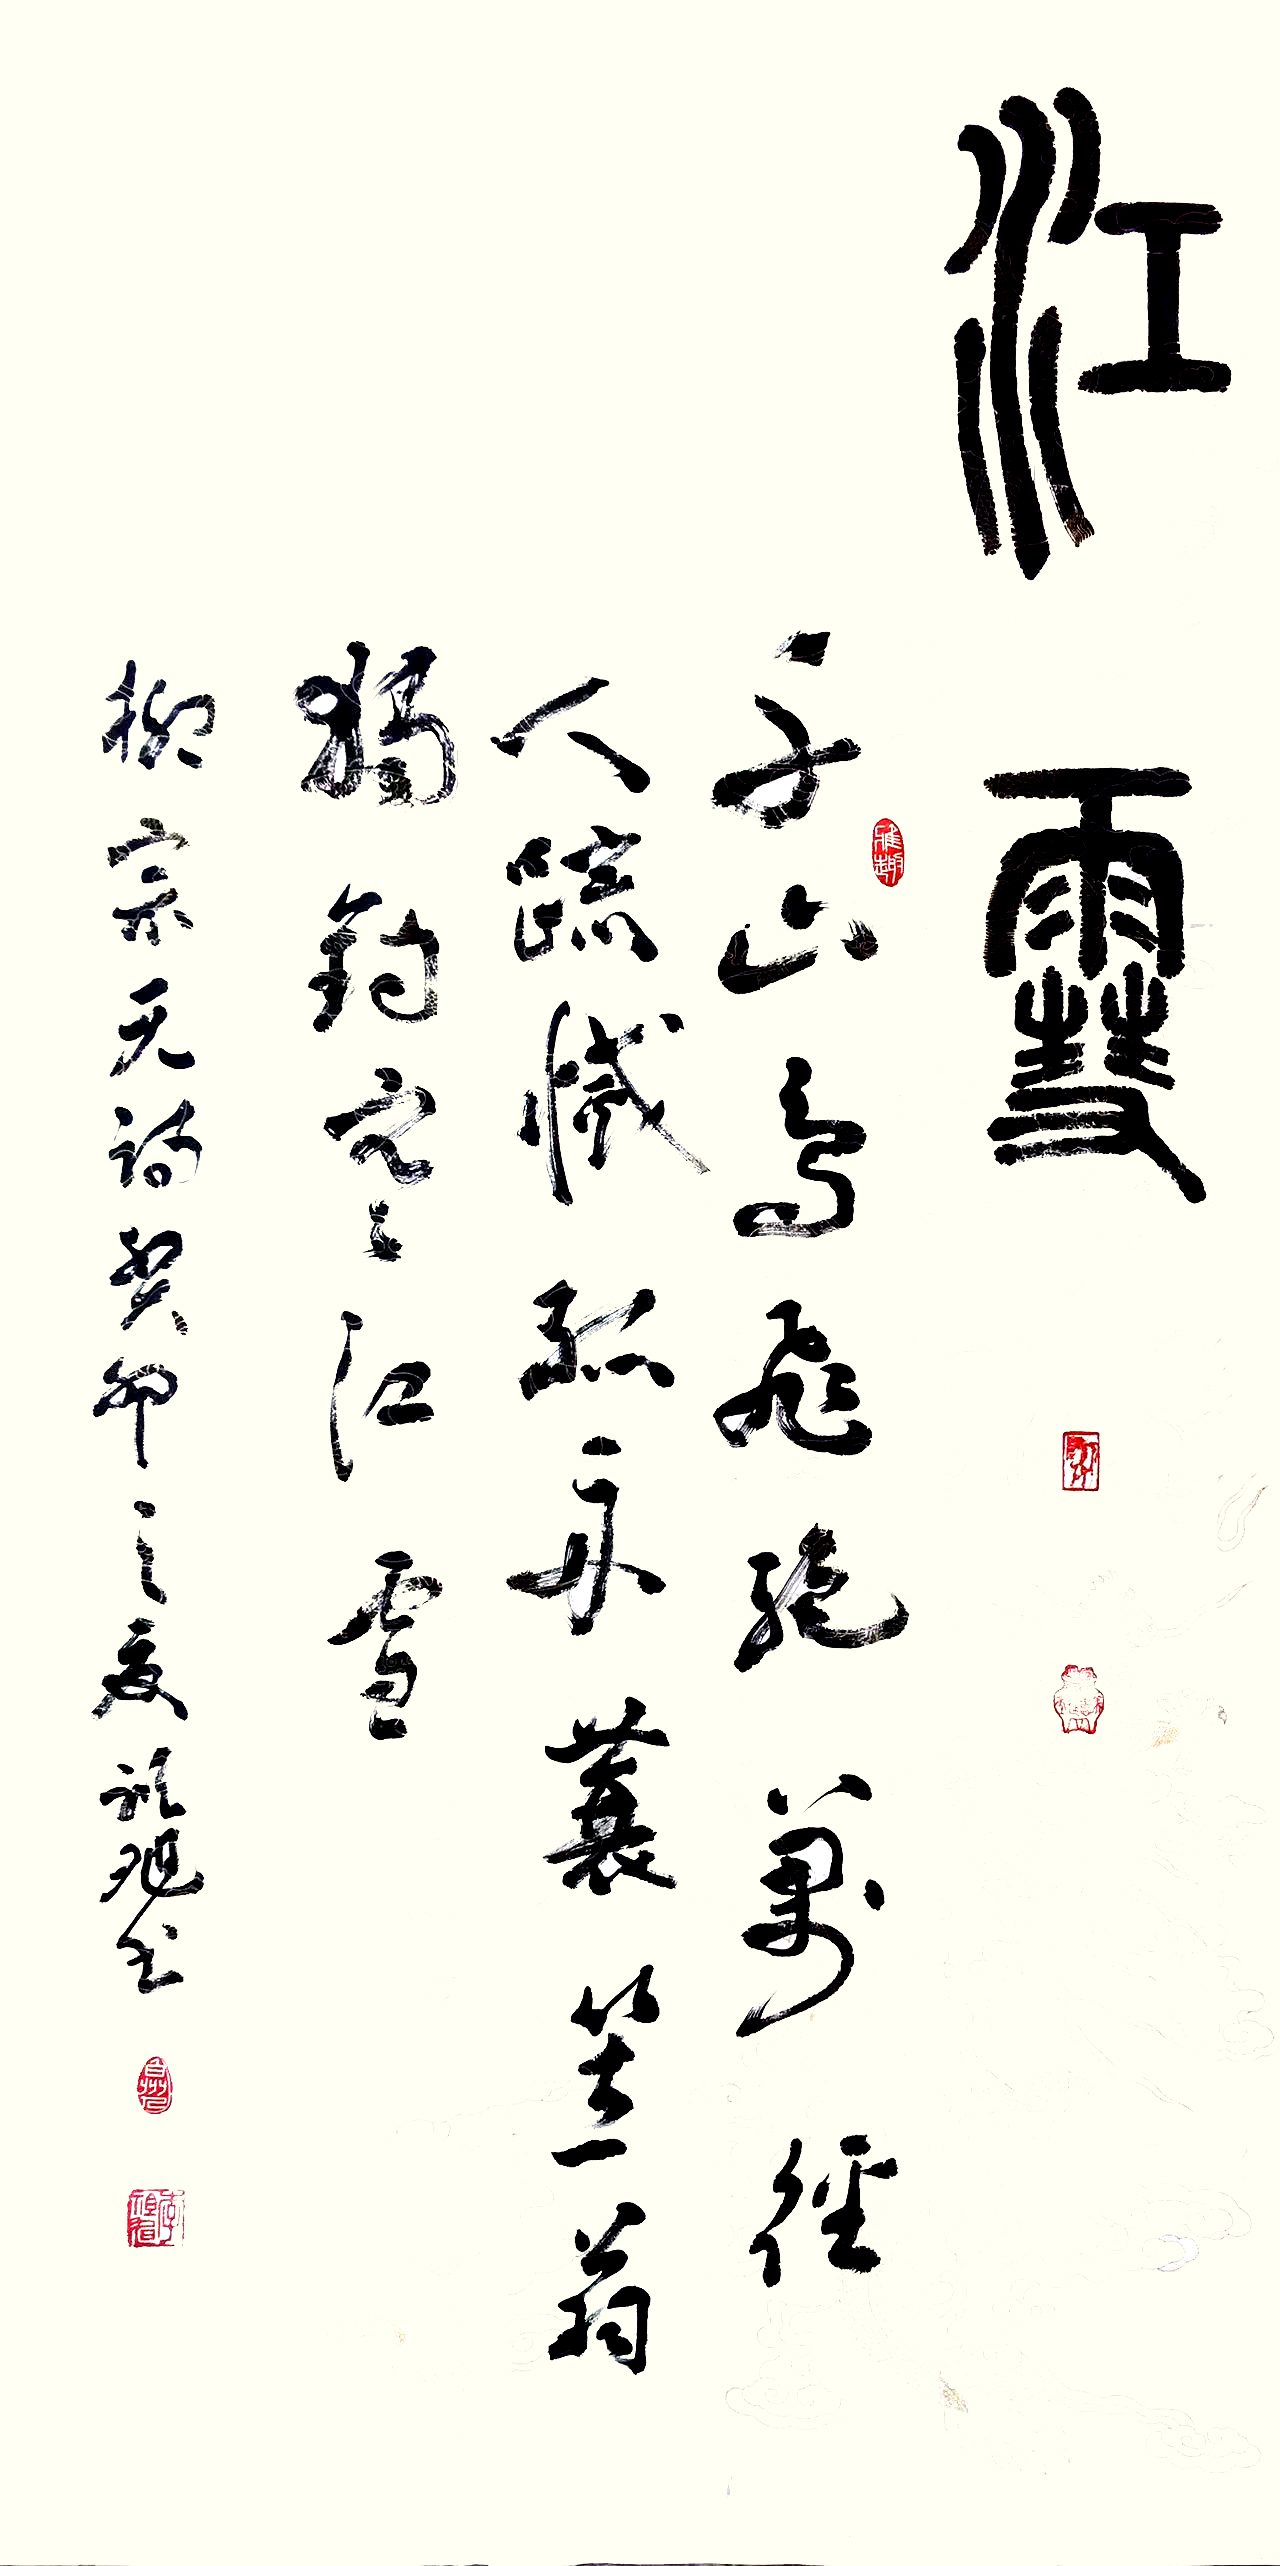 江雪
千山鳥飛絶萬徑
人蹤滅孤舟蓑笠翁
獨釣寒江雪
柳宗元詩癸卯之夏旭書
雅趣